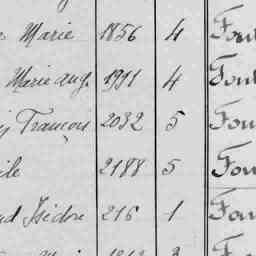 Marie 1856 4 Fon
Marie Aug. 1911 4 Font
François 2032 5 Fon
ile 2188 5 Fon
nd Isidore 216 1 Fon